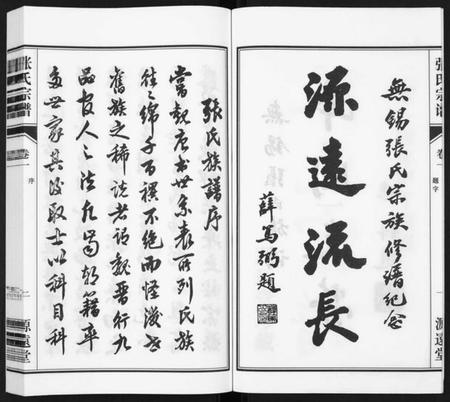 張氏宗譜
卷一
題字
一
源遠堂
無錫張氏宗族修譜紀念
源遠流長
薛寫弼題
張氏族譜序
嘗觀唐書世系表所列氏族
往往綿子百禩不絕而怪後世
舊族之稀說者謂魏晉行九
品官人之法凡
籍率
多世家其後取士以科目科
张氏宗谱
卷一
序
二
源遠堂